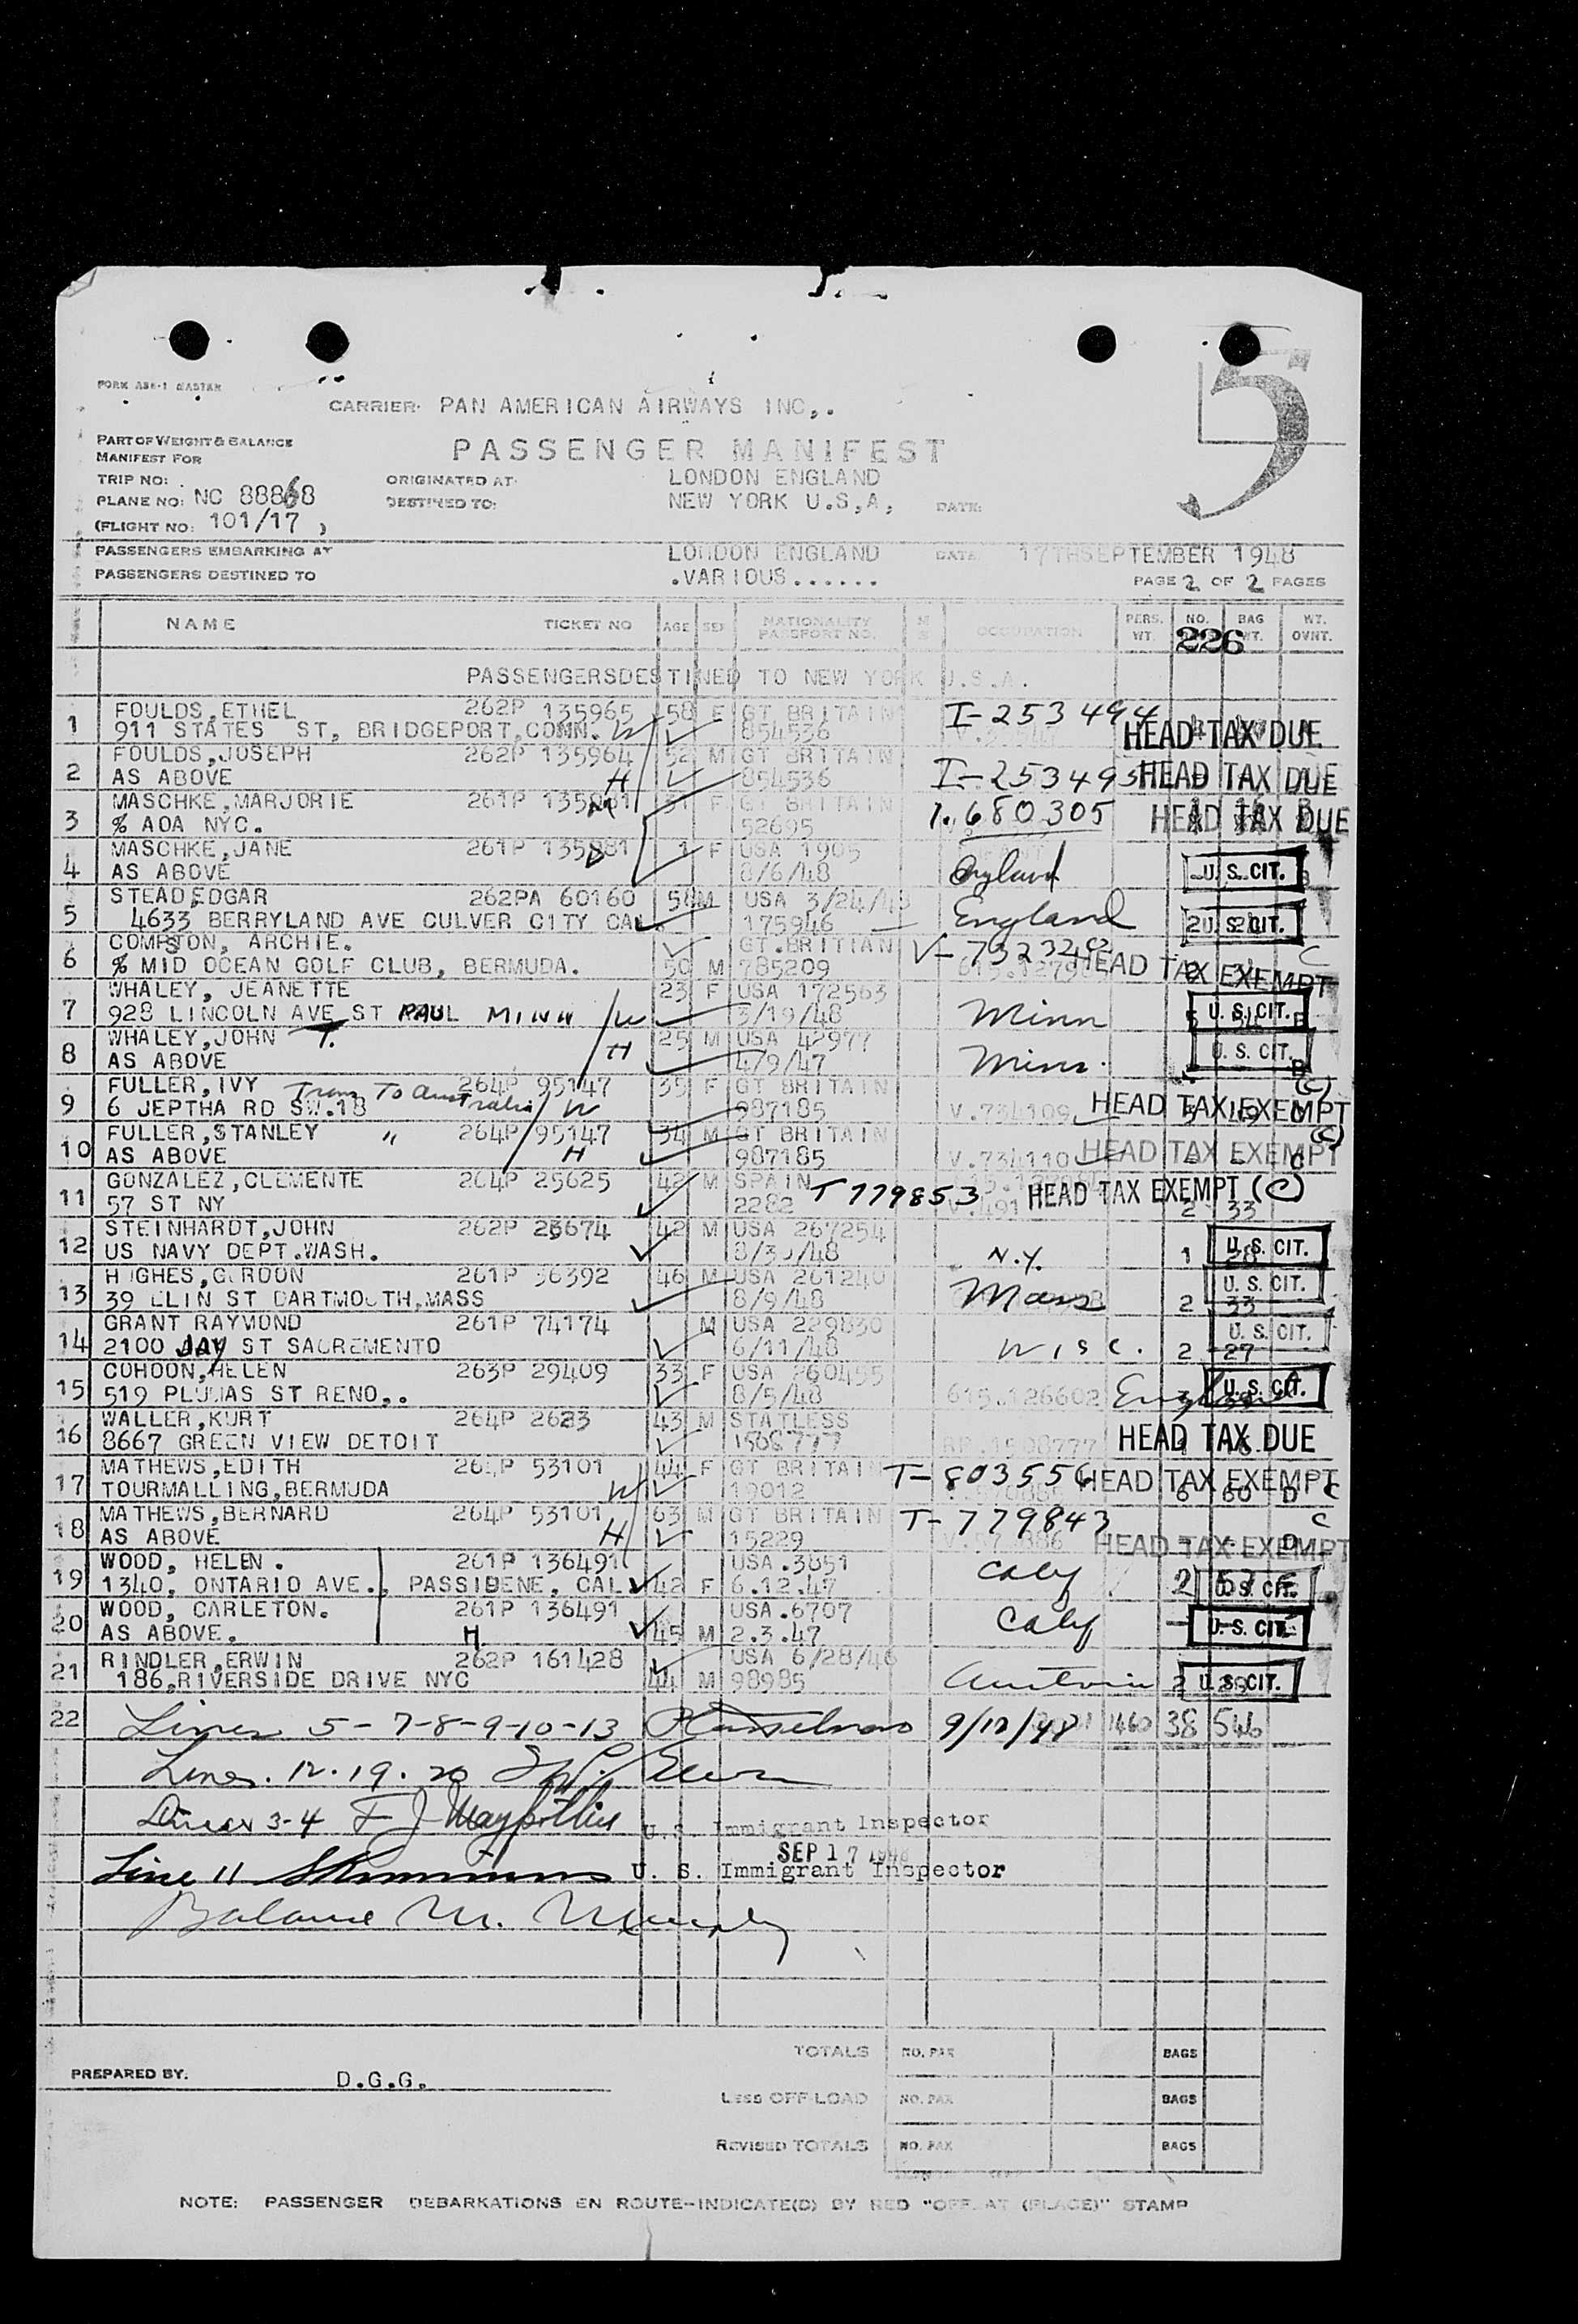 5
FORM
CARRIER: PAN AMERICAN AIRWAYS INC,.
PART OF WEIGHT & BALANCE
MANIFEST FOR
PASSENGER MANIFEST
TRIP NO:
ORIGINATED AT: LONDON ENGLAND
PLANE NO: NC 88868
DESTINED TO: NEW YORK U.S,A, DATE:
(FLIGHT NO: 101/17 )
PASSENGERS EMBARKING AT LONDON ENGLAND DATE 17THSEPTEMBER 1948
PASSENGERS DESTINED TO .VARIOUS......
PAGE 2 OF 2 PAGES
NAME TICKET NO AGE SEX NATIONALITY PASSPORT NO. M S OCCUPATION PERS. WT. NO. BAG WT. WT. OVNT.
226
PASSENGERSDESTINED TO NEW YORK U.S.A.
1 FOULDS,ETHEL 262P 135965 58 F GT BRITAIN I-253494
911 STATES ST, BRIDGEPORT,CONN. W 854536 HEAD TAX DUE
2 FOULDS,JOSEPH 262P 135964 52 M GT BRITAIN
AS ABOVE H 854536 I-253495 HEAD TAX DUE
3 MASCHKE,MARJORIE 261P 31 F GT BRITAIN 1.680305 HEAD TAX DUE
% AOA NYC. 52695
4 MASCHKE,JANE 261P 1 F USA 1905
AS ABOVE 8/6/48 England U.S.CIT.
5 STEAD,EDGAR 262PA 60160 M USA
4633 BERRYLAND AVE CULVER CITY CAL 175946 England U.S.CIT.
6 COMPSTON, ARCHIE. GT.BRITIAN C
% MID OCEAN GOLF CLUB, BERMUDA. 50 M 785209 HEAD TAX EXEMPT
7 WHALEY, JEANETTE 23 F USA 172563
928 LINCOLN AVE ST PAUL MINN W 3/19/48 Minn U.S.CIT.
8 WHALEY,JOHN T. 25 M USA 42977
AS ABOVE H 4/9/47 Minn. U.S.CIT.
9 FULLER,IVY Tran To Australia 264P 95147 35 F GT BRITAIN (C)
6 JEPTHA RD SW.18 W 987185 V.734109 HEAD TAX EXEMPT
10 FULLER,STANLEY " 264P 95147 34 M GT BRITAIN (C)
AS ABOVE H 987185 V.734110 HEAD TAX EXEMPT
11 GONZALEZ,CLEMENTE 264P 25625 42 M SPAIN T779853 HEAD TAX EXEMPT (C)
57 ST NY 2282 2 33
12 STEINHARDT,JOHN 262P 42 M USA 267254
US NAVY DEPT.WASH. 8/30/48 N.Y. 1 28 U.S.CIT.
13 HUGHES,GORDON 261P 56392 46 M USA 261240 U.S.CIT.
39 ELIN ST DARTMOUTH,MASS 8/9/48 Mass 2 33
14 GRANT RAYMOND 261P 74174 M USA 229830 U.S.CIT.
2100 JAY ST SACREMENTO 6/11/48 Wisc. 2 27
15 COHOON,HELEN 263P 29409 33 F USA 260455
519 PLUMAS ST RENO,. 8/5/48 615.126602 England U.S.CIT.
16 WALLER,KURT 264P 43 M STATLESS
8667 GREEN VIEW DETOIT 1508777 HEAD TAX DUE
17 MATHEWS,EDITH 53101 44 F GT BRITAIN T-803556 HEAD TAX EXEMPT
TOURMALLING,BERMUDA W 19012 6 60 D C
18 MATHEWS,BERNARD 264P 53101 63 M GT BRITAIN T-779843 C
AS ABOVE H 15229 HEAD TAX EXEMPT
19 WOOD, HELEN. 261P 136491 USA.3851
1340, ONTARIO AVE., PASSIDENE, CAL 42 F 6.12.47 Calif U.S.CIT.
20 WOOD, CARLETON. 261P 136491 USA.6707
AS ABOVE. H 45 M 2.3.47 Calif U.S.CIT.
21 RINDLER,ERWIN 262P 161428 USA 6/28/46
186,RIVERSIDE DRIVE NYC 44 M 98985 Austria 2 U.S.CIT.
22 Lines 5-7-8-9-10-13 9/17/48 1460 38 546
Lines. 12.19.20
Lines 3-4 F J U.S. Immigrant Inspector
SEP 17 1948
Line 11 U. S. Immigrant Inspector
Balance M. Murphy
TOTALS NO. PAX BAGS
PREPARED BY. D.G.G.
LESS OFF-LOAD NO. PAX BAGS
REVISED TOTALS NO. PAX BAGS
NOTE: PASSENGER DEBARKATIONS EN ROUTE-INDICATE(D) BY RED "OFF AT (PLACE)" STAMP